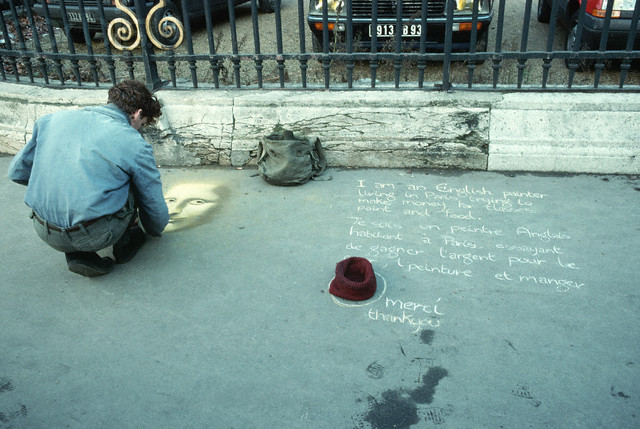 I am an English painter
living in Paris trying to
make money for classes
paint and food.
Je suis un peintre Anglais
habitant à Paris. essayant
de gagner l'argent pour le
peinture et manger
merci
thankyou
913 B 93